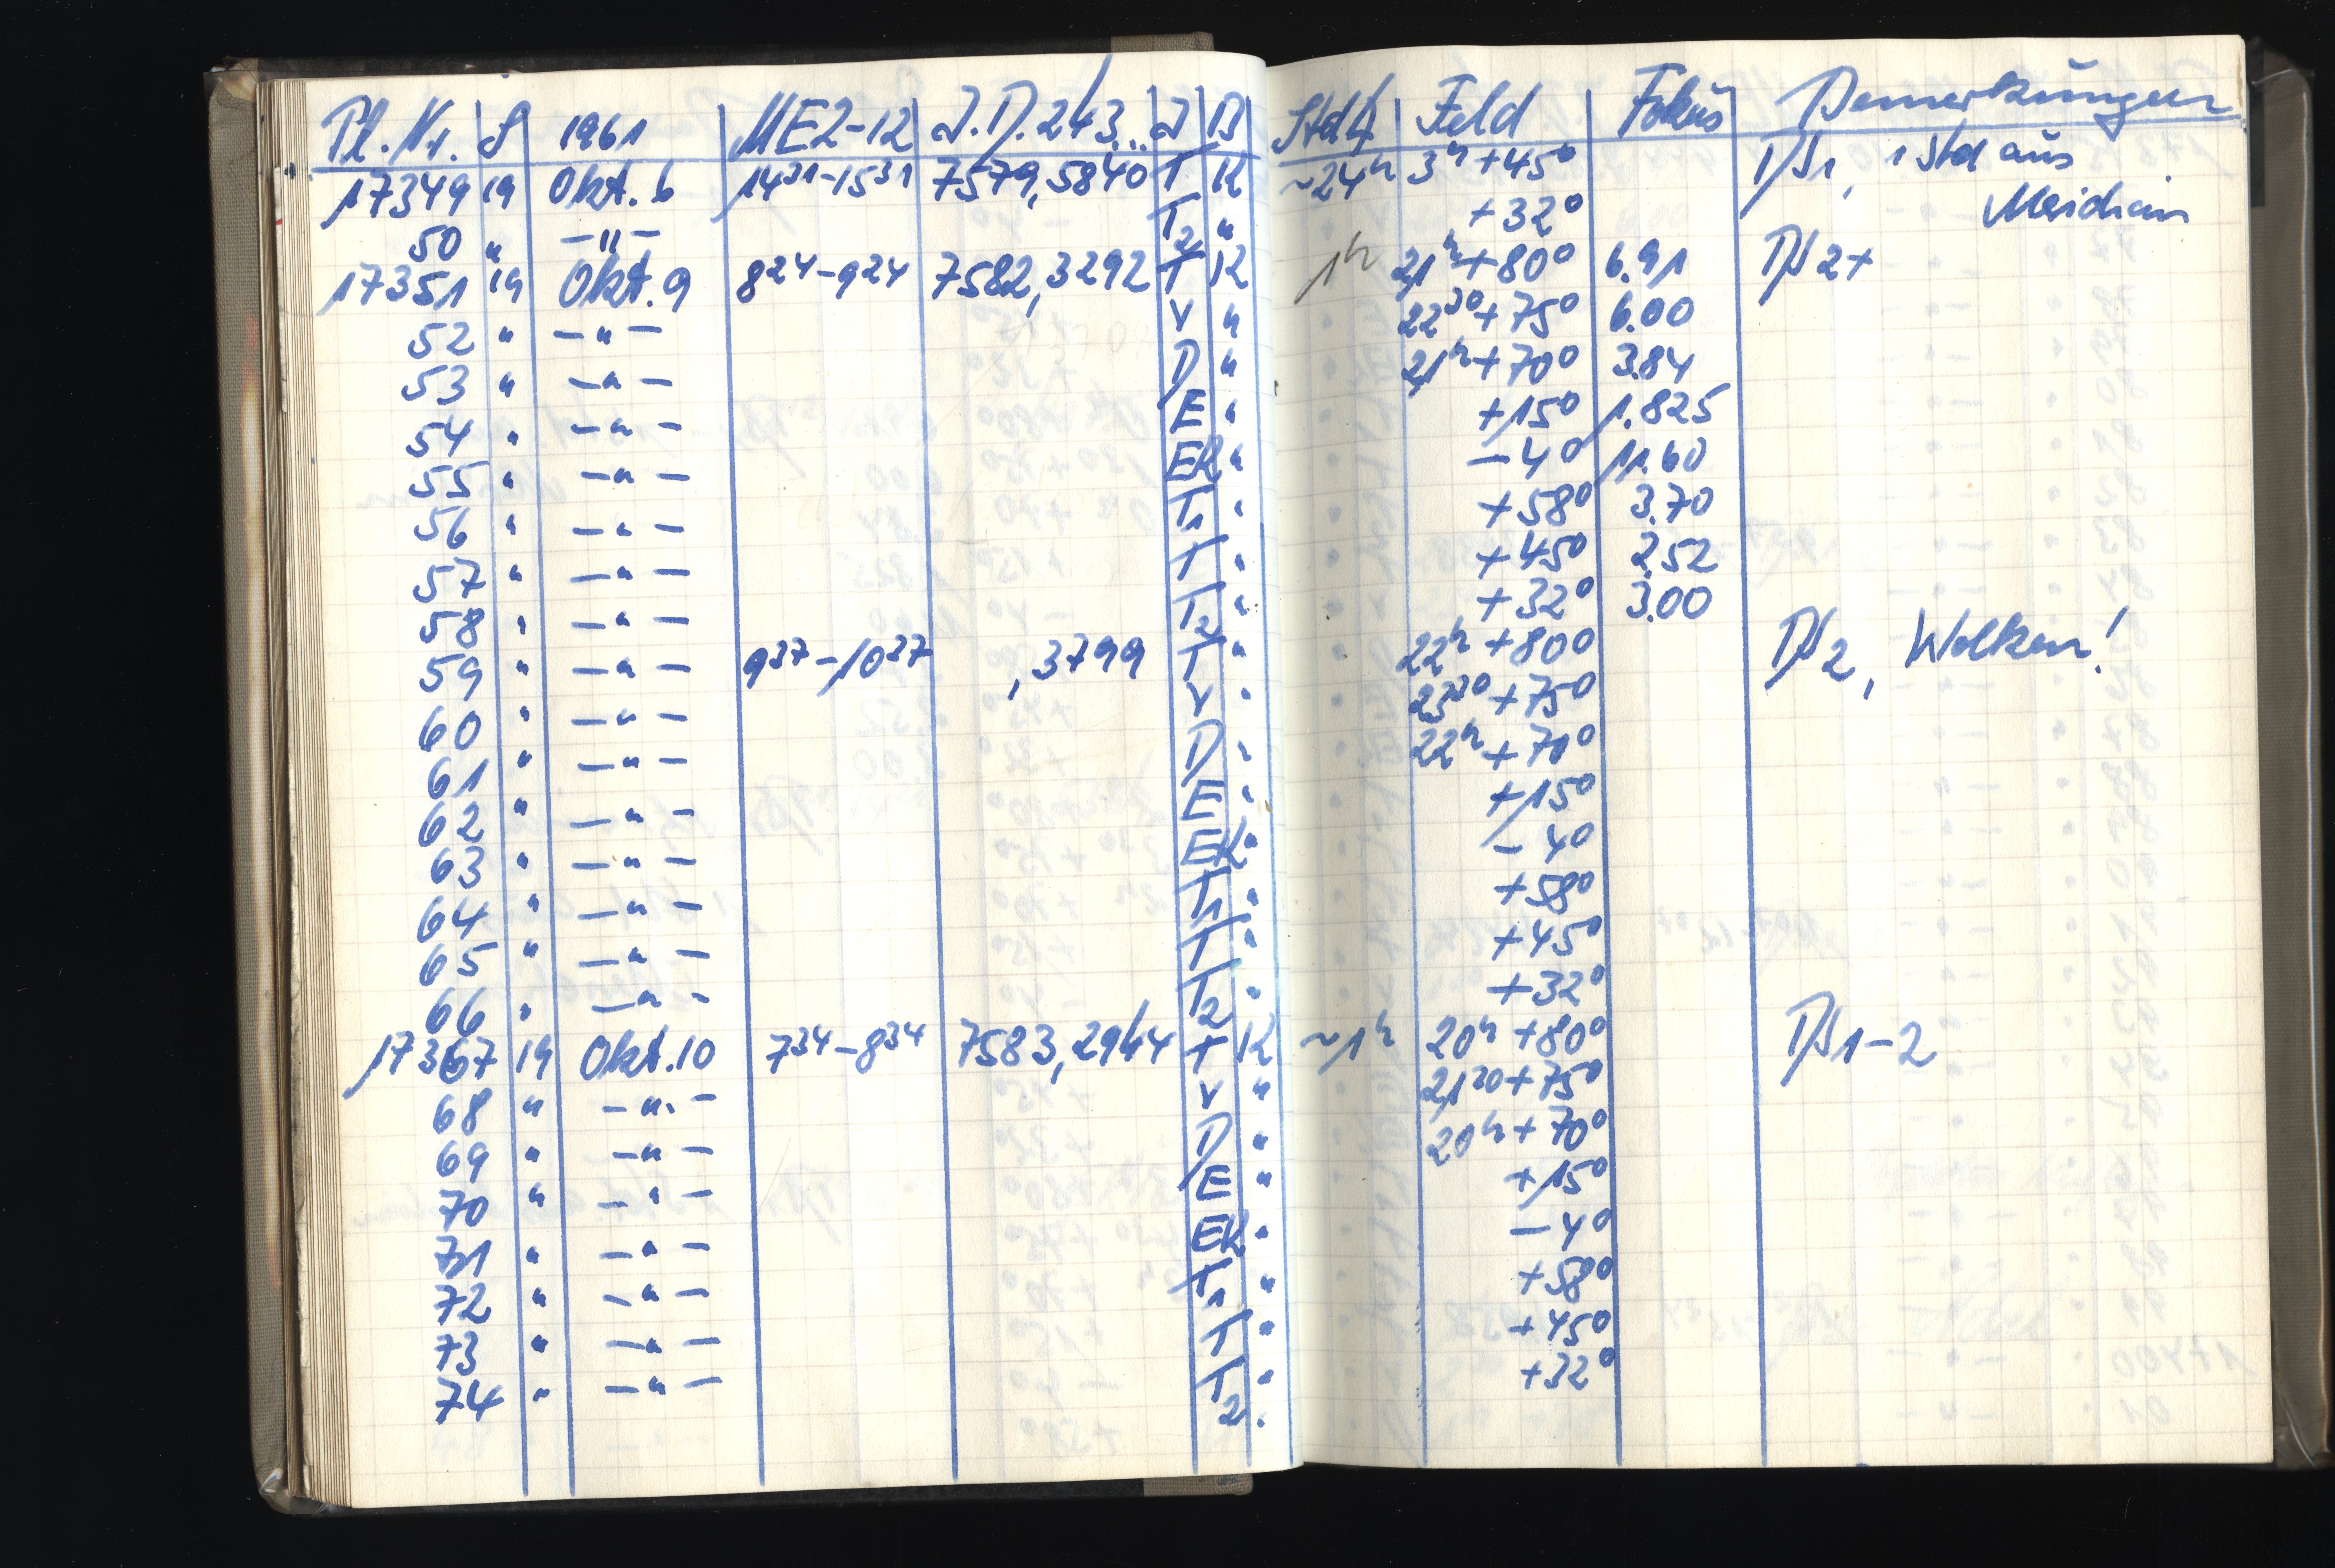 Pl. Nr. S 1961 MEZ-12 J.D. 243... J B Stdf Feld Fokus Bemerkungen
17349 19 Okt. 6 14³¹-15³¹ 7579,5840 T K ~24ʰ 3ʰ +45° DS1, 1 Std aus
50 " -"- T₂ " +32° Meridian
17351 19 Okt. 9 8²⁴-9²⁴ 7582,3292 T K 1ʰ 21ʰ+80° 6.91 DS 2+
52 " -"- V " 22³⁰+75° 6.00
53 " -"- D " 21ʰ+70° 3.84
54 " -"- E " +15° 1.825
55 " -"- EK " -4° 11.60
56 " -"- T₁ " +58° 3.70
57 " -"- T " +45° 2.52
58 " -"- T₂ " +32° 3.00
59 " -"- 9³⁷-10³⁷ ,3799 T " 22ʰ +80° DS 2, Wolken!
60 " -"- V " 23³⁰ +75°
61 " -"- D " 22ʰ +70°
62 " -"- E " +15°
63 " -"- EK " -4°
64 " -"- T₁ " +58°
65 " -"- T " +45°
66 " -"- T₂ " +32°
17367 19 Okt. 10 7³⁴-8³⁴ 7583,2944 T K ~1ʰ 20ʰ +80° DS 1-2
68 " -"- V " 21³⁰+75°
69 " -"- D " 20ʰ+70°
70 " -"- E " +15°
71 " -"- EK " -4°
72 " -"- T₁ " +58°
73 " -"- T " +45°
74 " -"- T₂ " +32°